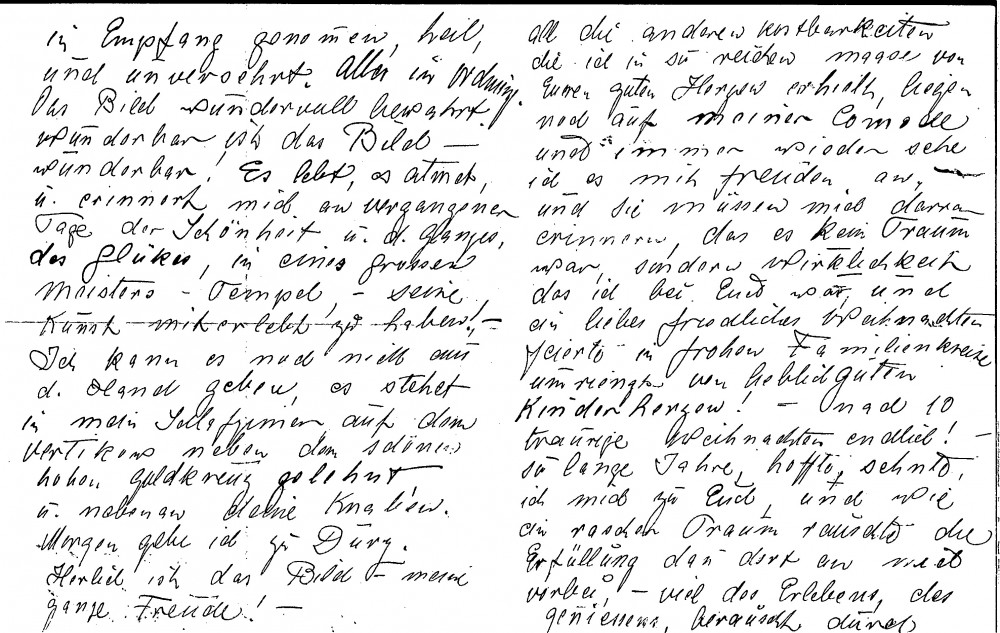 in Empfang genomen, heil,
und unversehrt. Alles in Ordnung.
Das Bild wundervoll bewahrt.
Wunderbar ist das Bild —
wunderbar! Es lebt, es atmet,
u. erinnert mich an vergangener
Tage der Schönheit u. d. Glanzes,
des Glükes, in eines grossen
Meisters - Tempel, - seine
Kunst miterlebt zu haben! -
Ich kann es noch nicht aus
d. Hand geben, es stehet
in mein Schlafzimer auf dem
Vertikow neben dem schönen
hohen Goldkreuz gelehnt
u. nebenan kleine
Morgen gehe ich zu
Herlich ist das Bild - meine
ganze Freude! -
all die anderen Kostbarkeiten
die ich in so reichen maase von
Euren guten Herzen erhielt, liegen
noch auf meiner Comode
und immer wieder sehe
ich es mit freuden an,
und sie müssen mich darran
erinnern, das es kein Traum
war, sondern Wirklichkeit
das ich bei Euch war und
ein liebes friedliches Weihnachten
feierte in frohen Familienkreise
umringt von lieblich guten
Kinder herzen! - nach 10
traurige Weihnachten endlich! -
so lange Jahre, hoffte, sehnte,
ich mich zu Euch, und wie
ein rascher Traum rauschte die
Erfüllung dan dort an mich
vorbei, - viel des Erlebens, des
geniessens, berauscht durch